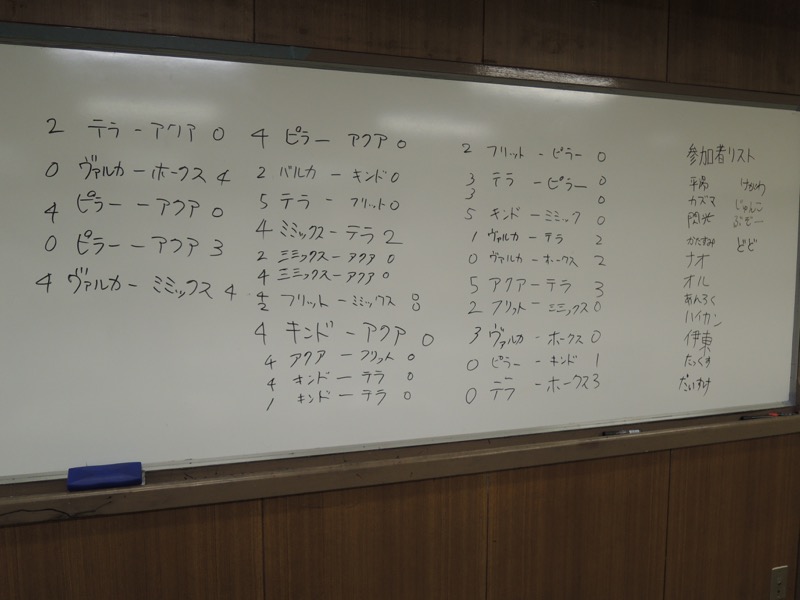 2 テラ ー アクア 0
0 ヴァルカ ー ホークス 4
4 ピラー ー アクア 0
0 ピラー ー アクア 3
4 ヴァルカ ー ミミックス 4
4 ピラー アクア 0
2 バルカ ー キンド 0
5 テラ ー フリット 0
4 ミミックス ー テラ 2
2 ミミックス ー アクア 0
4 ミミックス ー アクア 0
4 フリット ー ミミックス 0
2 0
4 キンド ー アクア 0
4 アクア ー フリット 0
4 キンド ー テラ 0
1 キンド ー テラ 0
2 フリット ー ピラー 0
3 テラ ー ピラー 0
3 0
5 キンド ー ミミック 0
1 ヴァルカ ー テラ 2
0 ヴァルカ ー ホークス 2
5 アクア ー テラ 3
2 フリット ー ミミックス 0
3 ヴァルカ ー ホークス 0
0 ピラー ー キンド 1
0 テラ ー ホークス 3
参加者リスト
カズマ
閃光
かたすみ
ナオ
オル
あんろく
ハイカン
伊東
たっくす
だいすけ
じゅんこ
どど